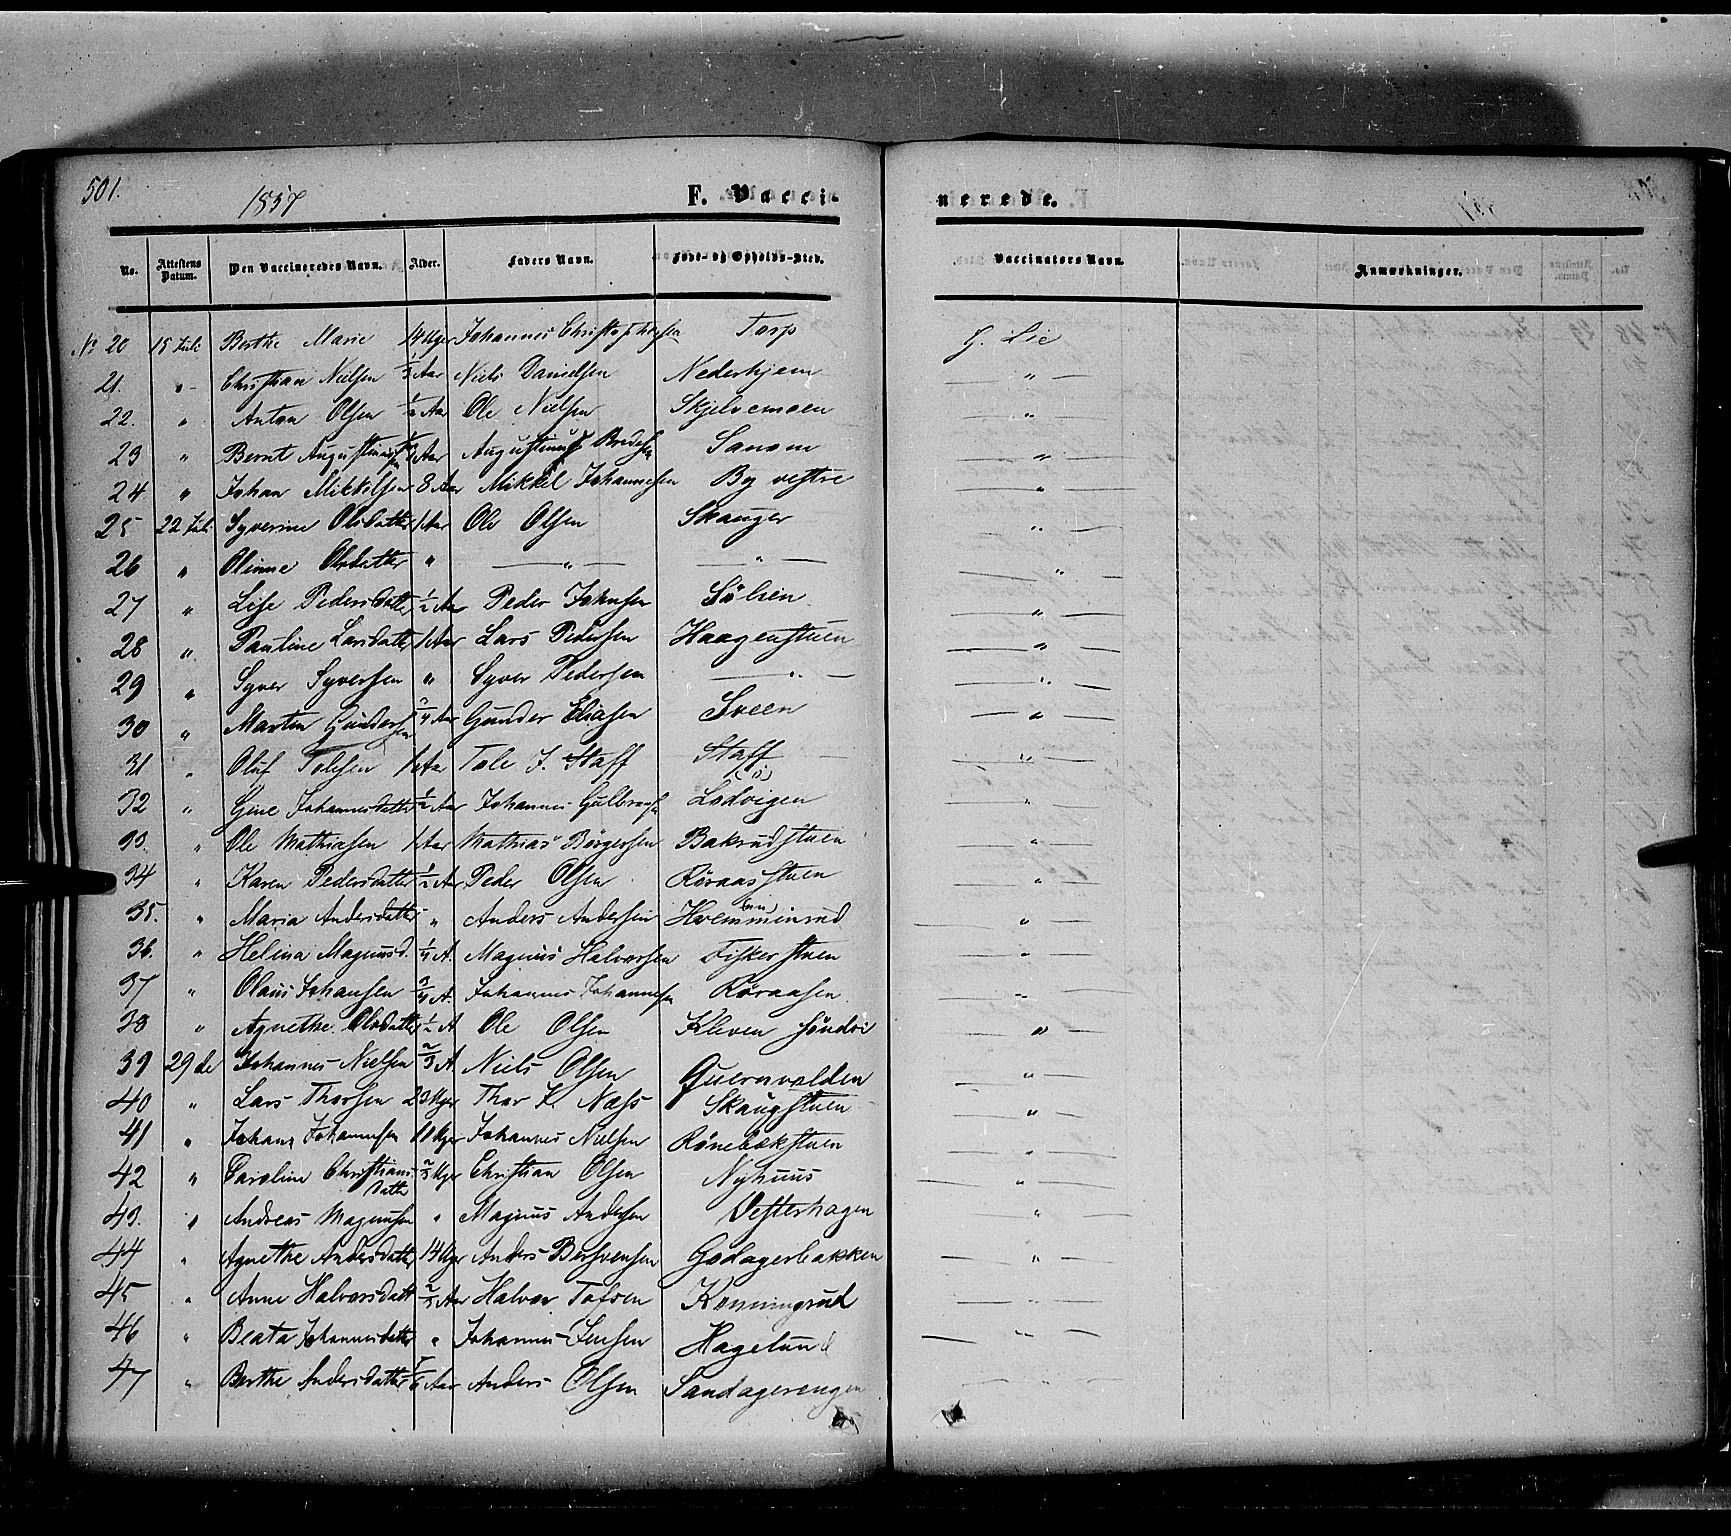 501.
1857
F. Vacci-
nerede.
No. Attestens Datum. Den Vaccineredes Navn. Alder. Faders Navn. Føde- og Opholds-Sted. Vaccinators Navn. Anmærkninger.
No 20 15 Juli Berthe Marie 14 Uger Johannes Christophersen Torp J. Lie
21. " Christian Nielsen 1/3 Aar Niels Danielsen Nederhjem — " —
22. " Anton Olsen 1/2 Aar Ole Nielsen Skjelvemoen — " —
23 " Bernt Augustinussen Aar Augustinus Bredesen Sanom — " —
24 " Johan Mikkelsen 8 Aar Mikkel Johannesen By vestre — " —
25 22 Juli Syverine Olsdatter 1 Aar Ole Olsen Skauger — " —
26 " Olinne Olsdatter " — " — — " — — " —
27 " Lise Pedersdatter 1/2 Aar Peder Johnsen Sölsen — " —
28 " Pauline Larsdatter 1 Aar Lars Pedersen Haagenstuen — " —
29 " Syver Syversen " Syver Pedersen — " — — " —
30 " Marten Gundersen 3/4 Aar Gunder Eliasen Sveen — " —
31 " Oluf Tolesen 1 Aar Tole J. Staff Staff — " —
32 " Gine Johannesdatter 1/2 Aar Johannes Gulbrandsen Lodvigen — " —
33. " Ole Mathiasen 1 Aar Mathias Börgersen Bakrudstuen — " —
34 " Karen Pedersdatter 1/2 Aar Peder Olsen Röraasstuen — " —
35. " Maria Andersdatter " Anders Andersen Hvemminrud — " —
36. " Helena Magnusd. 1/4 A. Magnus Halvorsen Fiskerstuen — " —
37 " Olaus Johansen 3/4 A. Johannes Johannesen Röraasen. — " —
38 " Agnethe Olsdatter 1/2 A Ole Olsen Kleven söndre — " —
39 29 de Johannes Nielsen 2/3 A Niels Olsen Quernvolden — " —
40 " Lars Thorsen 23 Uger Thor K. Næss Skaugstuen — " —
41 " Johans Johannesen 11 Uger Johannes Nielsen Rönebækstuen — " —
42 " Caroline Christiansdatter Christian Olsen Nyhuus — " —
43. " Andreas Magnusen " Magnus Andersen Vesterhagen — " —
44 " Agnethe Andersdatter 14 Uger Anders Bersvensen Godagerbakken — " —
45 " Anne Halvorsdatt Aar Halvor Tofsen Konningrud — " —
46 " Beata Johannesdatter " Johannes Jensen Hagelund — " —
47 " Berthe Andersdatter Aar Anders Olsen Sandagerengen — " —